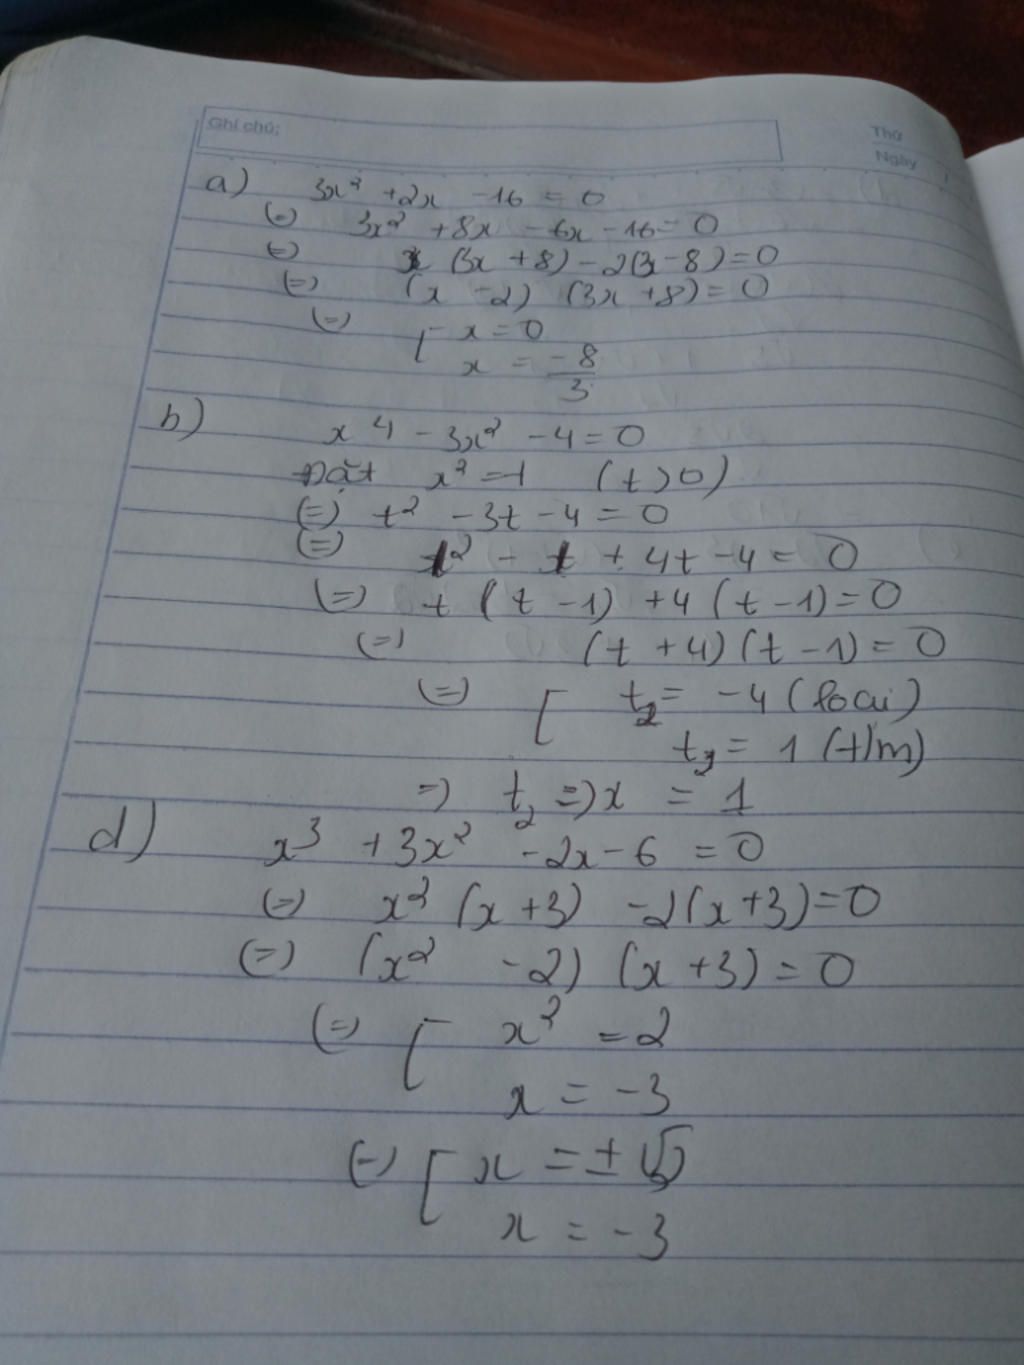 Ghi chú:
Thứ
Ngày
a) 3x² + 2x - 16 = 0
(=) 3x² + 8x - 6x - 16 = 0
(=) x (3x + 8) - 2(3x - 8) = 0
(=) (x - 2) (3x + 8) = 0
(=) [ x = 0
x = -8/3
b) x⁴ - 3x² - 4 = 0
Đặt x² = t (t > 0)
(=) t² - 3t - 4 = 0
(=) t² - t + 4t - 4 = 0
(=) t (t - 1) + 4 (t - 1) = 0
(=) (t + 4) (t - 1) = 0
(=) [ t₂ = -4 (loại)
t₁ = 1 (t/m)
=) t₂ =) x = 1
d) x³ + 3x² - 2x - 6 = 0
(=) x² (x + 3) - 2(x + 3) = 0
(=) (x² - 2) (x + 3) = 0
(=) [ x² = 2
x = -3
(=) [ x = ± √2
x = -3